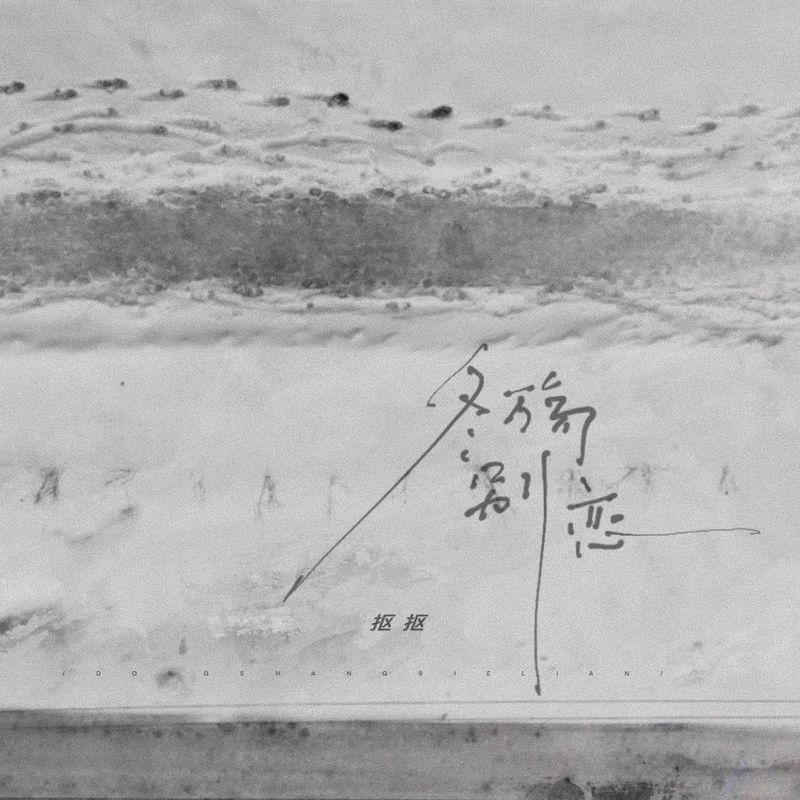 冬殇
别恋
抠抠
/DONGSHANGBIELIAN/